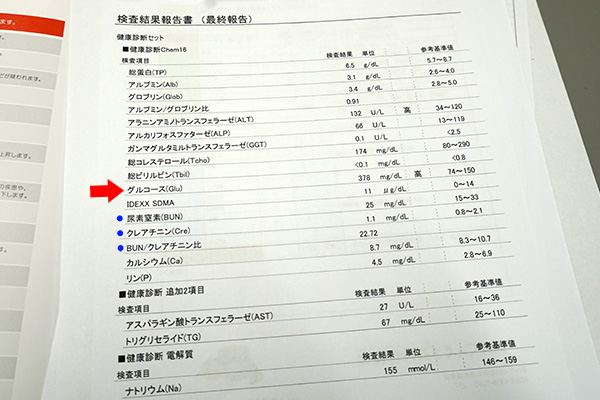 ます。
が疑われます。
上昇します。
の疾患や、
下します。
検査結果報告書 (最終報告)
健康診断セット
■健康診断Chem16
検査項目 検査結果 単位 参考基準値
総蛋白(TP) 6.5 g/dL 5.7~8.7
アルブミン(Alb) 3.1 g/dL 2.6~4.0
グロブリン(Glob) 3.4 g/dL 2.8~5.0
アルブミン/グロブリン比 0.91
アラニンアミノトランスフェラーゼ(ALT) 132 U/L 高 34~120
アルカリフォスファターゼ(ALP) 66 U/L 13~119
ガンマグルタミルトランスフェラーゼ(GGT) 0.1 U/L <2.5
総コレステロール(Tcho) 174 mg/dL 80~290
総ビリルビン(Tbil) <0.1 mg/dL <0.8
グルコース(Glu) 378 mg/dL 高 74~150
IDEXX SDMA 11 μg/dL 0~14
尿素窒素(BUN) 25 mg/dL 15~33
クレアチニン(Cre) 1.1 mg/dL 0.8~2.1
BUN/クレアチニン比 22.72
カルシウム(Ca) 8.7 mg/dL 8.3~10.7
リン(P) 4.5 mg/dL 2.8~6.9
■健康診断 追加2項目
検査項目 検査結果 単位 参考基準値
アスパラギン酸トランスフェラーゼ(AST) 27 U/L 16~36
トリグリセライド(TG) 67 mg/dL 25~110
■健康診断 電解質
検査項目 検査結果 単位 参考基準値
ナトリウム(Na) 155 mmol/L 146~159